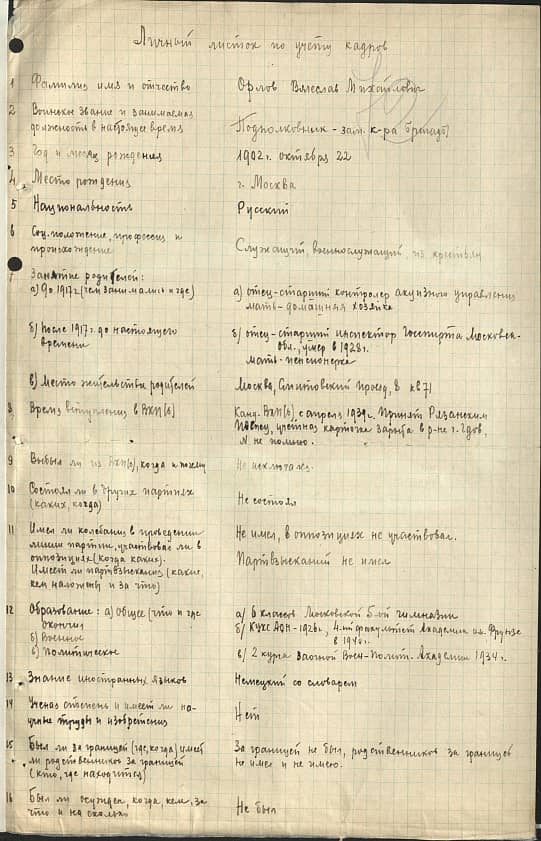 Личный листок по учету кадров
1 Фамилия имя и отчество Орлов Вячеслав Михайлович
2 Воинское звание и занимаемая должность в настоящее время Подполковник - зам. к-ра бригады
3 Год и месяц рождения 1902 г. октября 22
4. Место рождения г. Москва
5 Национальность Русский
6 Соц. положение, профессия и происхождение Служащий, военнослужащий, из крестьян
7 Занятие родителей:
а) до 1917 г. (чем занимались и где) а) отец-старший контролер акцизного управления
мать-домашняя хозяйка
б) после 1917 г. до настоящего времени б) отец-старший инспектор Госспирта Московск.
обл., умер в 1928 г.
мать-пенсионерка
в) Место жительства родителей Москва, Смитовский проезд, 8 кв 71
8. Время вступления в ВКП(б) Канд. ВКП(б) с апреля 1939 г. Принят Рязанским
учетная карточка зарыта в р-не г. Гдов,
№ не помню.
9 Выбыл ли из ВКП(б), когда и почему Не исключался.
10 Состоял ли в других партиях
(каких, когда) Не состоял
11 Имел ли колебания в проведении Не имел, в оппозициях не участвовал.
линии партии, участвовал ли в
оппозициях (когда каких). Партвзысканий не имел
Имеет ли партвзыскания (какие,
кем наложены и за что)
12 Образование: а) общее (что и где а/ 6 классов Московской 5-ой гимназии
окончил
б) Военное б/ КУКС - 1926 г., 4-ый факультет Академии им. Фрунзе
в 1940 г.
в) Политическое в/ 2 курса заочной Воен-Полит. Академии 1934 г.
13 Знание иностранных языков Немецкий со словарем
14 Ученая степень и имеет ли научные труды и изобретения Нет
15 Был ли за границей (где, когда) имеет За границей не был, родственников за границей
ли родственников за границей не имел и не имею.
(кто, где находится)
16 Был ли осужден, когда, кем, за
что и на сколько Не был